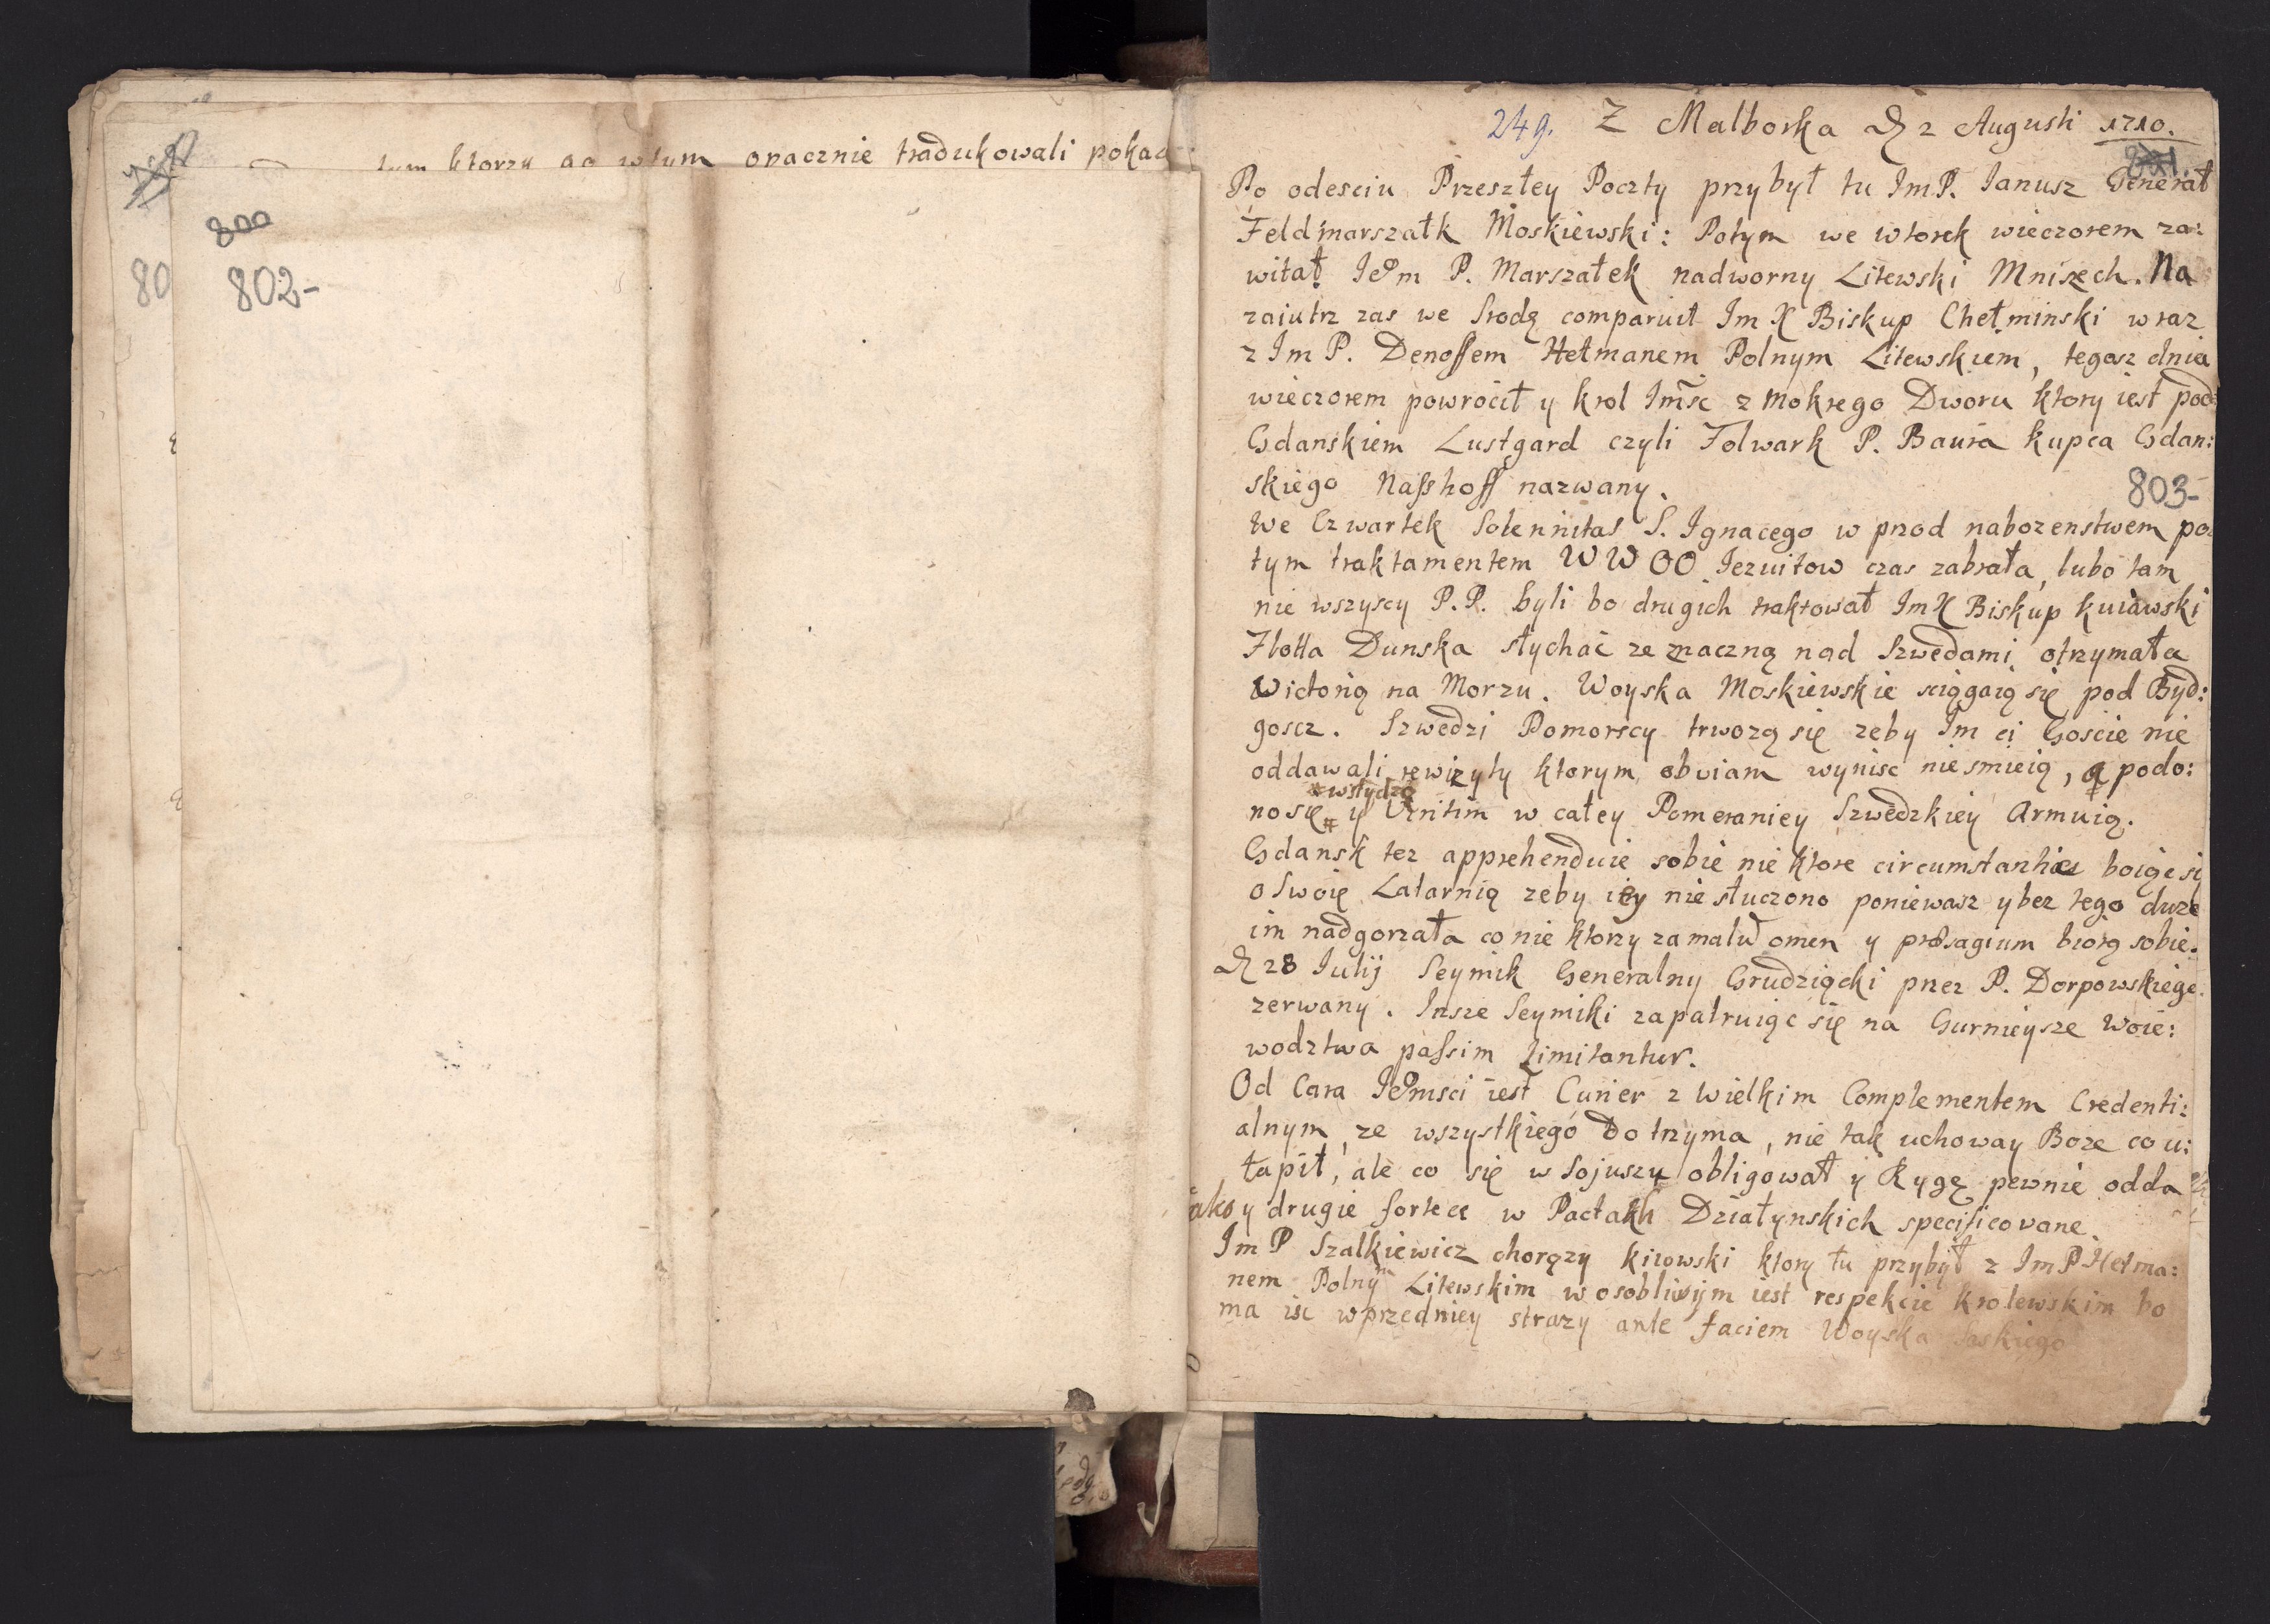 tym ktorzy go w tym opacznie tradukowali pokaa
800
80
802-
249. Z Malborka D 2 Augusti 1710.
801.
Po odesciu Przeszłey Poczty przybył tu ImP. Ianusz Generał
Feldmarszałk Moskiewski: Potym we wtorek wieczorem za:
witał Iegm P. Marszałek nadworny Litewski Mniszech. Na
zaiutrz zas we Srodę comparuit Im X Biskup Chełminski wraz
z Im P. Denoffem Hetmanem Polnym Litewskiem, tegosz dnia
wieczorem powrócił y krol Imsc z Mokrego Dworu ktory iest pod
Gdanskiem Lustgard czyli Folwark P. Baura kupca Gdan:
skiego Nasshoff nazwany.
803-
We Czwartek Solennitas S. Ignacego w przod nabozenstwem po:
tym traktamentem WW OO Iezuitow czas zabrała, lubo tam
nie wszyscy P.P. byli bo drugich traktował Im X Biskup kuiawski
Flotta Dunska słychać ze znaczną nad Szwedami otrzymała
Wictorią na Morzu. Woyska Moskiewskie sciągaią się pod Byd:
goscz. Szwedzi Pomorscy trwozą się zeby Im ci Goscie nie
oddawali rewizyty ktorym obviam wynisc nie smieią, a podo:
wstydzą
no się # y Vritim w całey Pomeraniey Szwedzkiey Armuią.
Gdansk tez apprehenduie sobie nie ktore circumstantiae boiąc się
o Swoię Latarnię zeby iey nie stuczono poniewasz y bez tego duze
im nadgorzała co nie ktorzy za malum omen y praesagium biorą sobie.
D 28 Iulij Seymik Generalny Grudziącki przez P. Dorpowskiego
zerwany. Insze Seymiki zapatruiąc się na Gurnieysze Woie:
wodztwa passim limitantur.
Od Cara Iegmsci iest Curier z wielkim Complementem Credenti:
alnym, ze wszystkiego Dotrzyma, nie tak uchoway Boze co u:
łapił, ale co się w Sojuszu obligował y Rygę pewnie odda
iako y drugie fortece w Pactakh Działynskich specificovane.
Im P Szalkiewicz chorązy kiiowski ktory tu przybył z ImP Hetma:
nem Polnym Litewskim w osobliwym iest respekcie krolewskim bo
ma isc w przedniey strazy ante faciem Woyska Saskiego